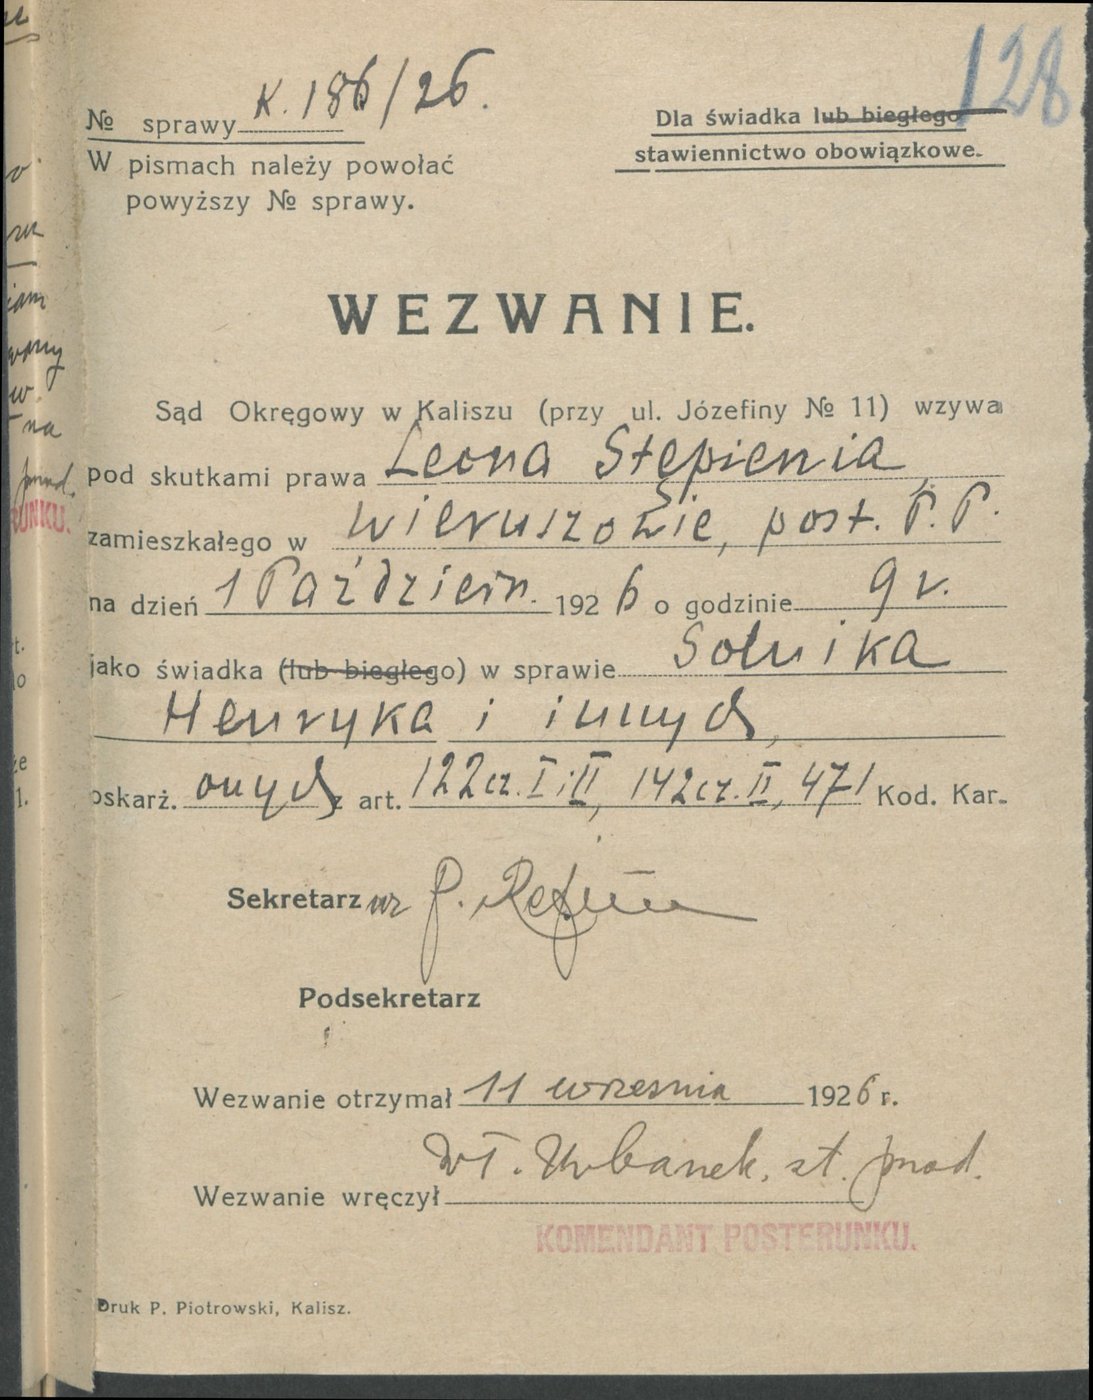 128
№ sprawy K. 186/26.
W pismach należy powołać
powyższy № sprawy.
Dla świadka lub biegłego
stawiennictwo obowiązkowe.
WEZWANIE.
Sąd Okręgowy w Kaliszu (przy ul. Józefiny № 11) wzywa
pod skutkami prawa Leona Stępienia,
zamieszkałego w Wieruszowie, post. P. P.
na dzień 1 Październ. 1926 o godzinie 9 r.
jako świadka (lub biegłego) w sprawie Solnika
Henryka i innych,
oskarż. onych z art. 122 cz. I i II, 142 cz. II, 471 Kod. Kar.
Sekretarz wz
Podsekretarz
Wezwanie otrzymał 11 wrzesnia 1926 r.
Wezwanie wręczył Wł. Urbanek, st. przod.
KOMENDANT POSTERUNKU.
Druk P. Piotrowski, Kalisz.